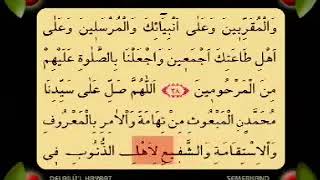 وَالْمُقَرَّبِينَ وَعَلَى اَنْبِيَائِكَ وَالْمُرْسَلِينَ وَعَلَى
اَهْلِ طَاعَتِكَ اَجْمَعِينَ وَاجْعَلْنَا بِالصَّلٰوةِ عَلَيْهِمْ
مِنَ الْمَرْحُومِينَ ﴿٢٨﴾ اَللّٰهُمَّ صَلِّ عَلَى سَيِّدِنَا
مُحَمَّدٍ الْمَبْعُوثِ مِنْ تِهَامَةَ وَالْاٰمِرِ بِالْمَعْرُوفِ
وَالْاِسْتِقَامَةِ وَالشَّفِيعِ لِاَهْلِ الذُّنُوبِ فِى
DELAİLÜ'L HAYRAT
SEMERKAND